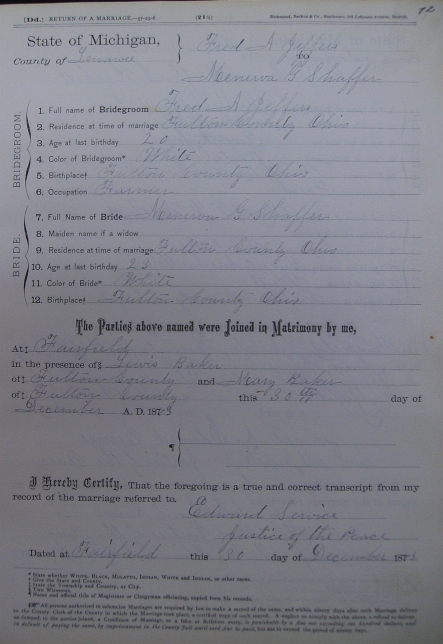 [Dd.] RETURN OF A MARRIAGE. (218)
72
State of Michigan,
County of Lenawee
Fred A Jeffers
to
Menerva G Shaffer
BRIDEGROOM.
1. Full name of Bridegroom Fred A Jeffers
2. Residence at time of marriage Fulton County Ohio
3. Age at last birthday 20
4. Color of Bridegroom* White
5. Birthplace† Fulton County Ohio
6. Occupation Farmer
BRIDE.
7. Full Name of Bride Menerva G Shaffer
8. Maiden name if a widow
9. Residence at time of marriage Fulton County Ohio
10. Age at last birthday 23
11. Color of Bride* White
12. Birthplace† Fulton County Ohio
The Parties above named were Joined in Matrimony by me,
At‡ Fairfield
in the presence of§ Lewis Baker
of‡ Fulton County and Mary Baker
of‡ Fulton County this 30th day of
December A. D. 1873
¶
I Hereby Certify, That the foregoing is a true and correct transcript from my
record of the marriage referred to.
Edward Service
Justice of the Peace
Dated at Fairfield this 30 day of December 1873
* State whether WHITE, BLACK, MULATTO, INDIAN, WHITE and INDIAN, or other races.
† Give the State and County.
‡ State the Township and County, or City.
§ Two Witnesses.
¶ Name and official title of Magistrate or Clergyman officiating, copied from his records.